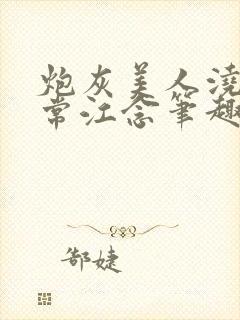 炮灰美人浇
常江念笔趣
郜婕